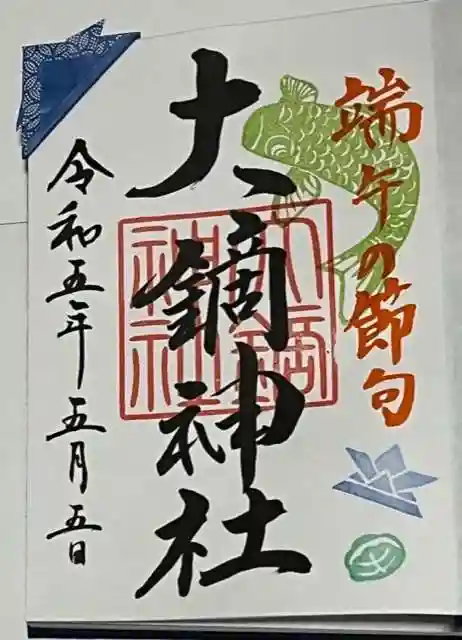 端午の節句
大鏑神社
大鏑神社
令和五年五月五日